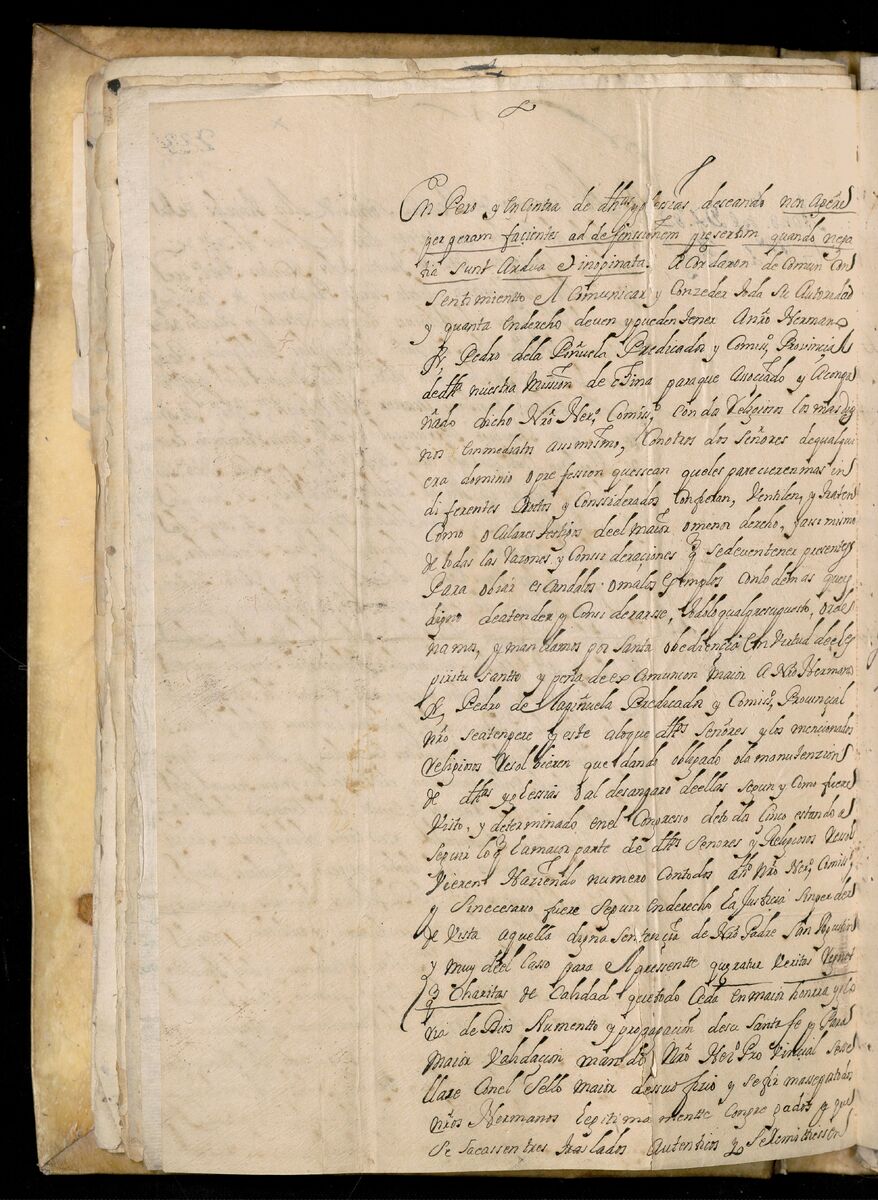 En Pero y en Contra de dhas yglessias deseando non aperire
per geram facientes ad defenssionem presertim quando nepo
tia sunt Ardua et inopinata. Acordaron de Comun Con
Sentimiento el Comunicar y Conzeder toda su Autoridad
y quanta enderecho deven y pueden tener A nro Hermano
fr. Pedro dela Piñuela Predicador y Comisso. Provincial
de dha nuestra Mission de China paraque Asociado y Acompa
ñado dicho Nro Hero. Comisso. con dos Religiosos los mas dig
nos enmediatos assimismo, Con otros dos Señores dequalqui
era dominio o profession quessean queles parecieren mas in
diferentes Doctos y Conssiderados Confieran, Ventilen, y traten
Como oculares testigos de el maior o menor derecho, y assi mismo
de todas las Razones y Conssideraciones q se deven tener pressentes
Para obiar escandalos o malos exemplos con lo demas que es
digno de atender y Conssiderarsse, todo lo qual pressupuesto, orde
namos, y mandamos por Santa obediencia en Virtud de el es
piritu santto y pena de ex Comunion maior A Nro Hermano
fr. Pedro de la piñuela Predicador y Comisso. Provincial
nro se atempere y este a lo que dhos señores y los mencionados
Religiosos Resolbieren quedando obligado o la manutenzion
de dhas yglessias o al desamparo de ellas segun y Como fuere
Visto, y determinado en el Congresso de todos Cinco estando a
seguir lo q la maior parte de dhos Señores y Religiosos Resol
vieren Haziendo numero Con todos dho Nro Hero. Comisso.
y Si necesario fuere Seguir en derecho la Justicia sin perder
de Vista aquella digna Sentencia de Nro Padre San Agustin
y muy de el Casso para el pressente queratur Veritas Regnet
q Charitas de Calidad que todo Ceda en maior honrra y glo
ria de Dios Aumento y propagacion de su Santa fe y Para
maior Validacion mando Nro Hero. Provincial se se
llare Con el Sello maior de ssu officio y se firmasse por todos
nros Hermanos legitimamente Congregados y que
Se sacassen tres traslados Autenticos y Se Remitiessen